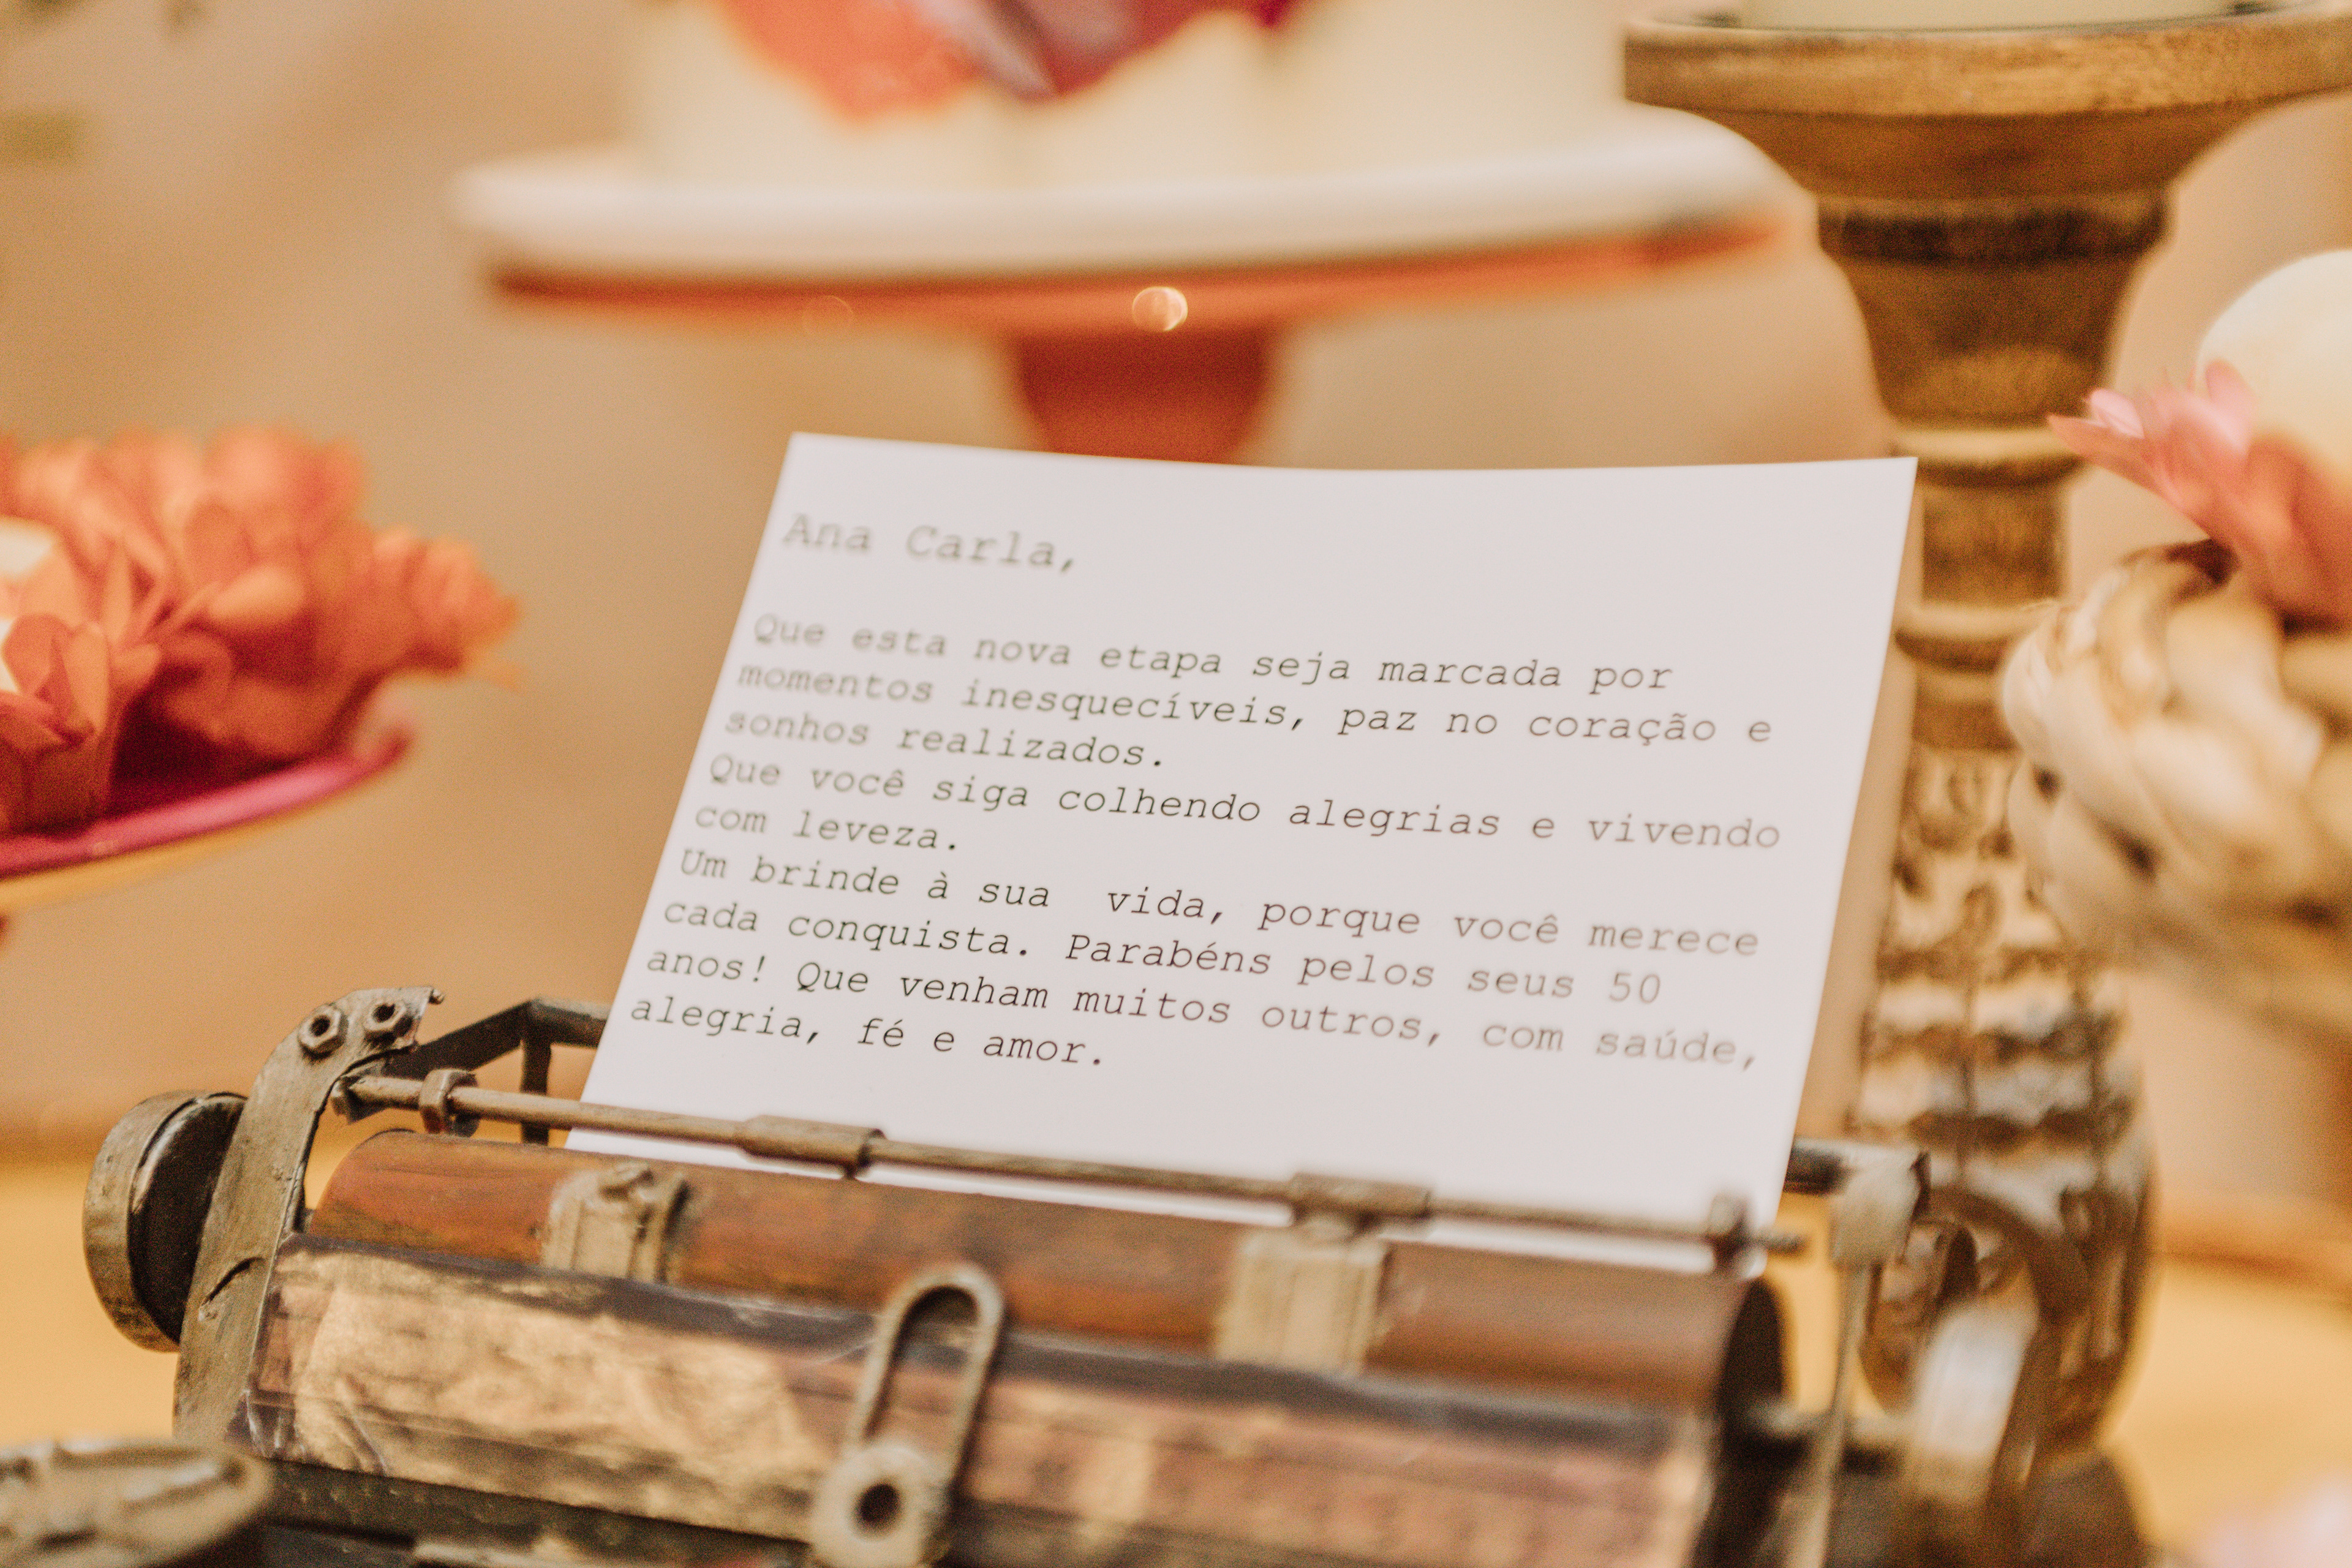 Ana Carla,
Que esta nova etapa seja marcada por
momentos inesquecíveis, paz no coração e
sonhos realizados.
Que você siga colhendo alegrias e vivendo
com leveza.
Um brinde à sua  vida, porque você merece
cada conquista. Parabéns pelos seus 50
anos! Que venham muitos outros, com saúde,
alegria, fé e amor.